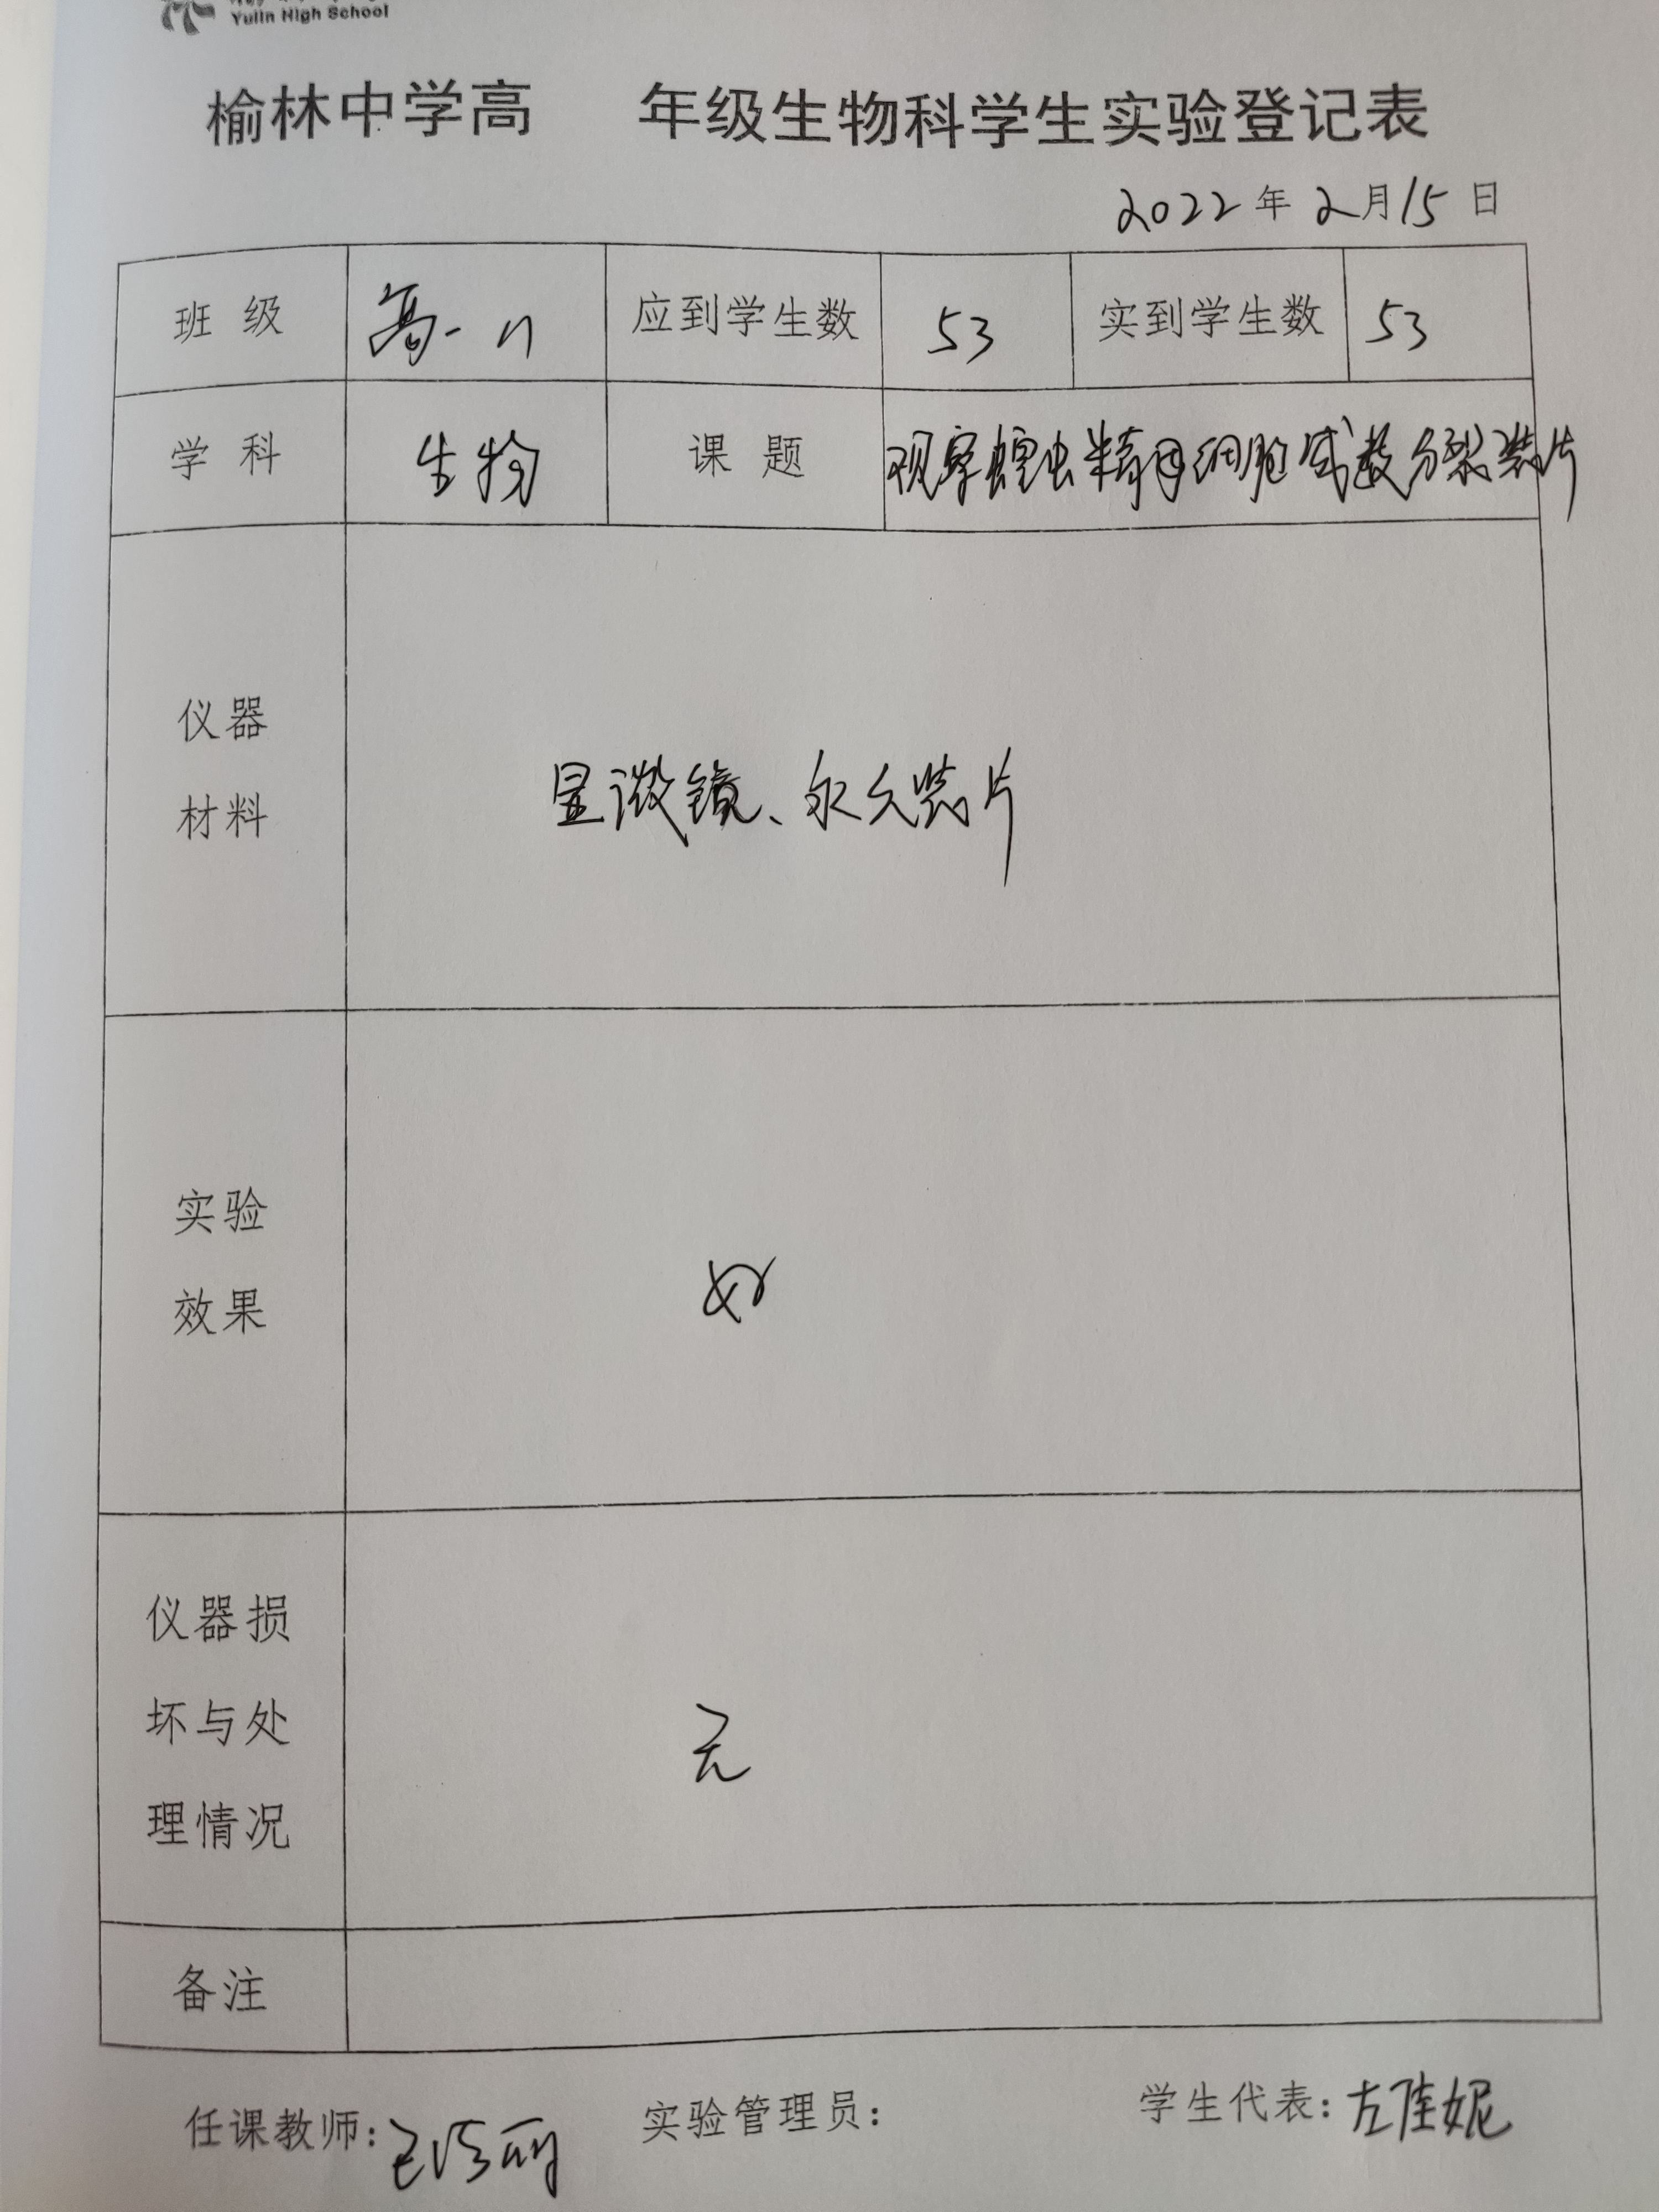 Yulin High School
榆林中学高 年级生物科学生实验登记表
2022年2月15日
班 级 高一 应到学生数 53 实到学生数 53
学 科 生物 课 题 观察蝗虫精母细胞减数分裂装片
仪器
材料
显微镜、永久装片
实验
效果
好
仪器损
坏与处
理情况
无
备注
任课教师: 实验管理员: 学生代表:左佳妮